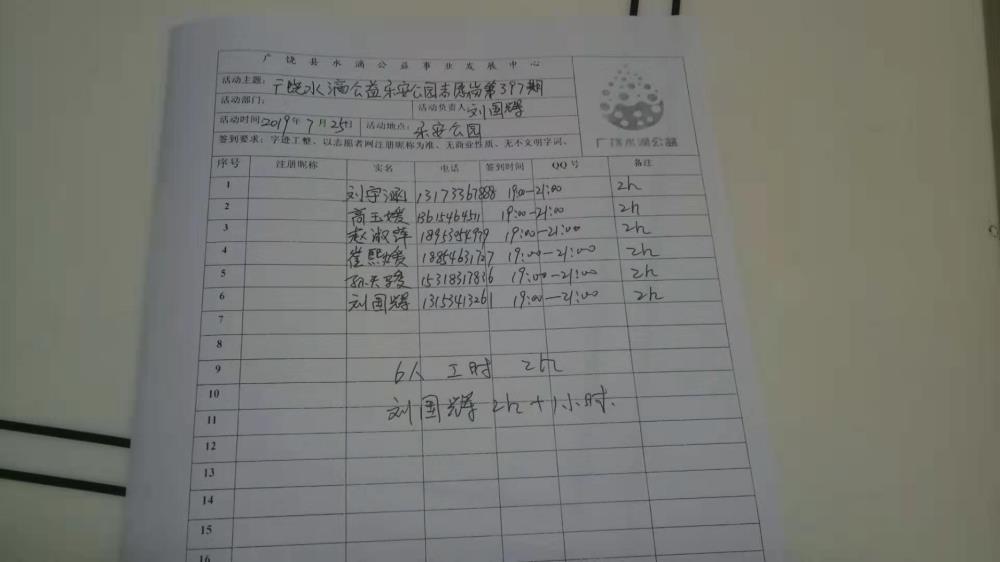 广饶县水滴公益事业发展中心
活动主题: 广饶水滴公益乐安公园志愿岗第397期
活动部门: 活动负责人 刘国辉
活动时间 2019年7月25日 活动地点: 乐安公园
签到要求: 字迹工整、以志愿者网注册昵称为准、无商业性质、无不文明字词、
广饶水滴公益
序号 注册昵称 实名 电话 签到时间 QQ号 备注
1 刘宇涵 13173367888 19:00-21:00 2h
2 高玉媛 13615464511 19:00-21:00 2h
3 赵淑萍 18953954979 19:00-21:00 2h
4 崔熙媛 18854631727 19:00-21:00 2h
5 孙天骏 15318317836 19:00-21:00 2h
6 刘国辉 13153413261 19:00-21:00 2h
7
8
9 6人 工时 2h
10
刘国辉 2h+1小时.
11
12
13
14
15
16